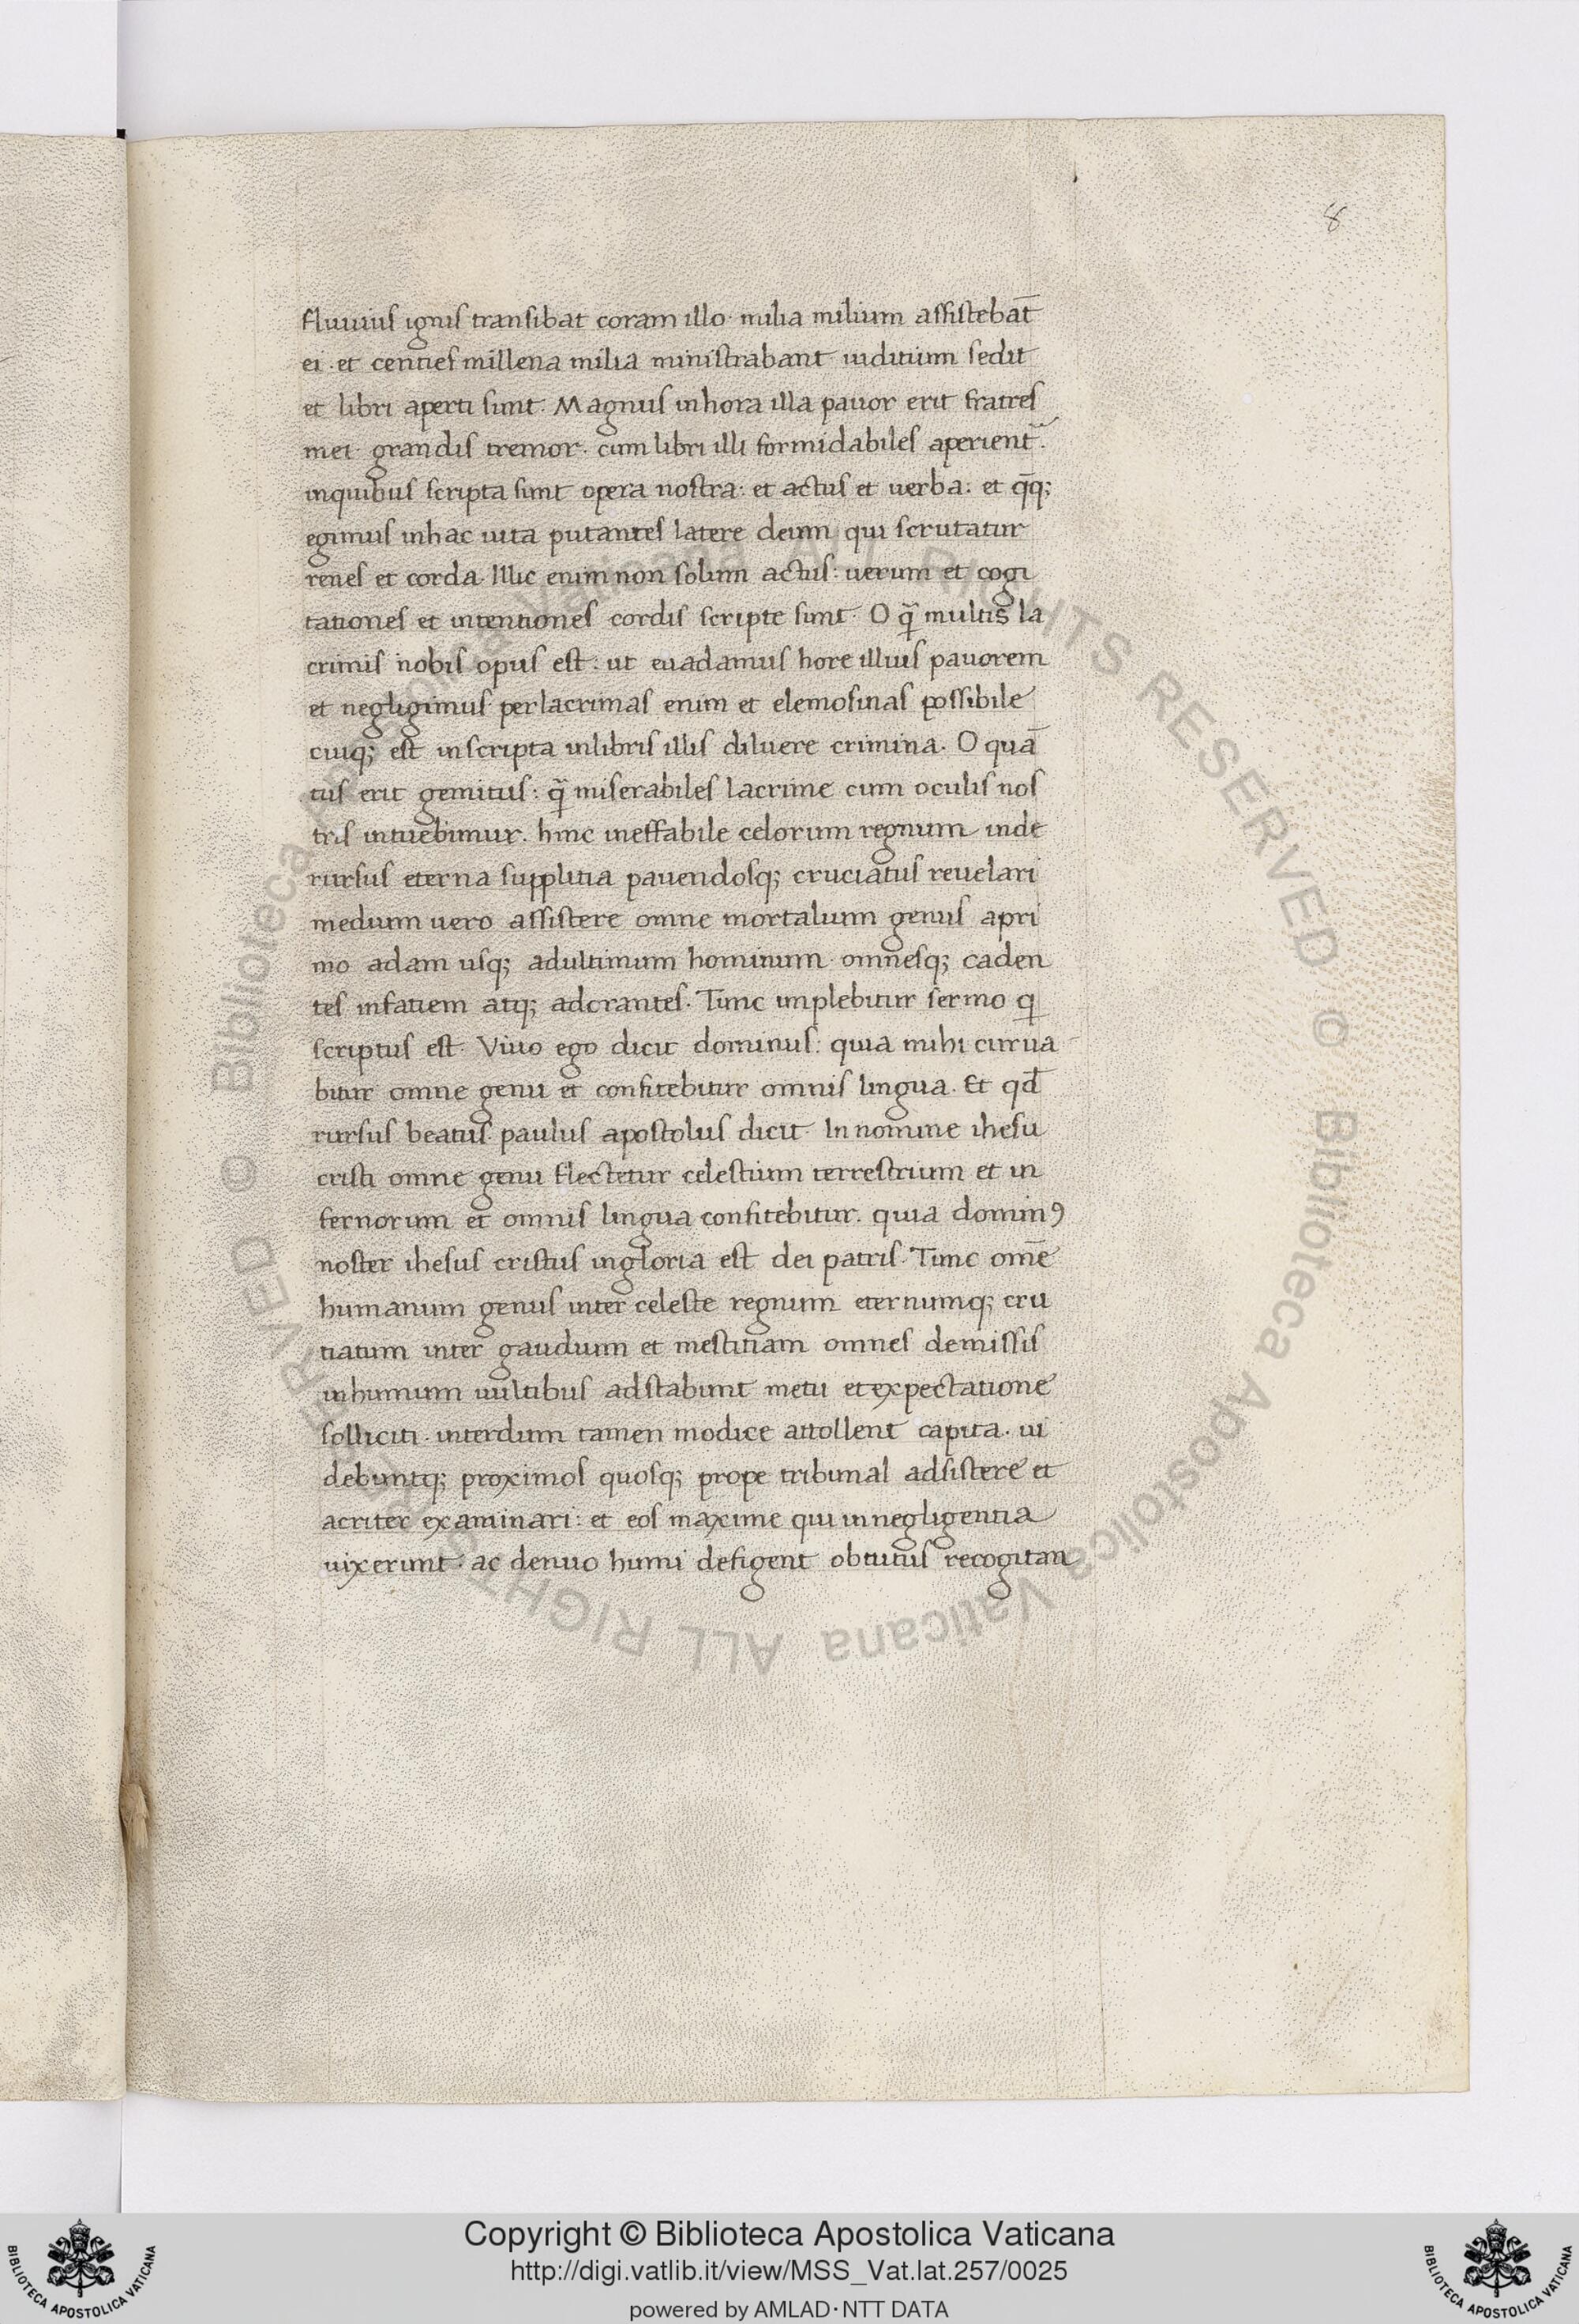 8
fluuius ignis transibat coram illo· milia milium assistebāt
ei· et centies millena milia ministrabant iuditium sedit
et libri aperti sunt· Magnus inhora illa pauor erit fratres
mei· grandis tremor· cum libri illi formidabiles aperient᷑·
inquibus scripta sunt opera nostra: et actus et uerba: et q̄q;
egimus inhac uita putantes latere deum qui scrutatur
renes et corda· Illic enim non solum actus: uerum et cogi
tationes et intentiones cordis scripte sunt· O q̄ multis la
crimis nobis opus est: ut euadamus hore illius pauorem
et negligimus perlacrimas enim et elemosinas possibile
cuiq; est inscripta inlibris illis diluere crimina· O quā
tus erit gemitus: q̄ miserabiles lacrime cum oculis nos
tris intuebimur· hinc ineffabile celorum regnum inde
rursus eterna supplitia pauendosq; cruciatus reuelari
medium uero assistere omne mortalium genus apri
mo adam usq; adultimum hominum· omnesq; caden
tes infatiem atq; adorantes· Tunc implebitur sermo q
scriptus est· Viuo ego dicit dominus: quia mihi curua
bitur omne genu et confitebitur omnis lingua· Et qd̄
rursus beatus paulus apostolus dicit· In nomine ihesu
cristi omne genu flectetur celestium terrestrium et in
fernorum et omnis lingua confitebitur· quia dominꝰ
noster ihesus cristus ingloria est dei patris· Tunc om̄e
humanum genus inter celeste regnum eternumq; cru
tiatum inter gaudium et mestitiam omnes demissis
inhumum uultibus adstabunt metu et expectatione
solliciti· interdum tamen modice attollent capita· ui
debuntq; proximos quosq; prope tribunal adsistere et
acriter examinari: et eos maxime qui innegligentia
uixerunt· ac denuo humi defigent obtutus recogitan
Copyright © Biblioteca Apostolica Vaticana
http://digi.vatlib.it/view/MSS_Vat.lat.257/0025
powered by AMLAD·NTT DATA